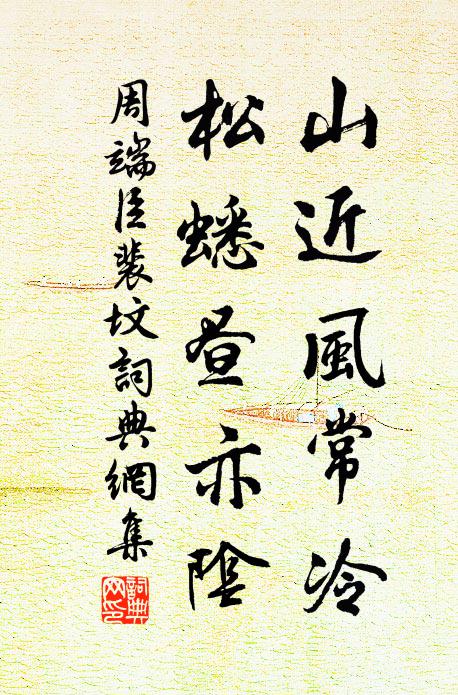 山近風常冷
松蟠昼亦陰
周端臣裴坟詞典網集
詞典网印